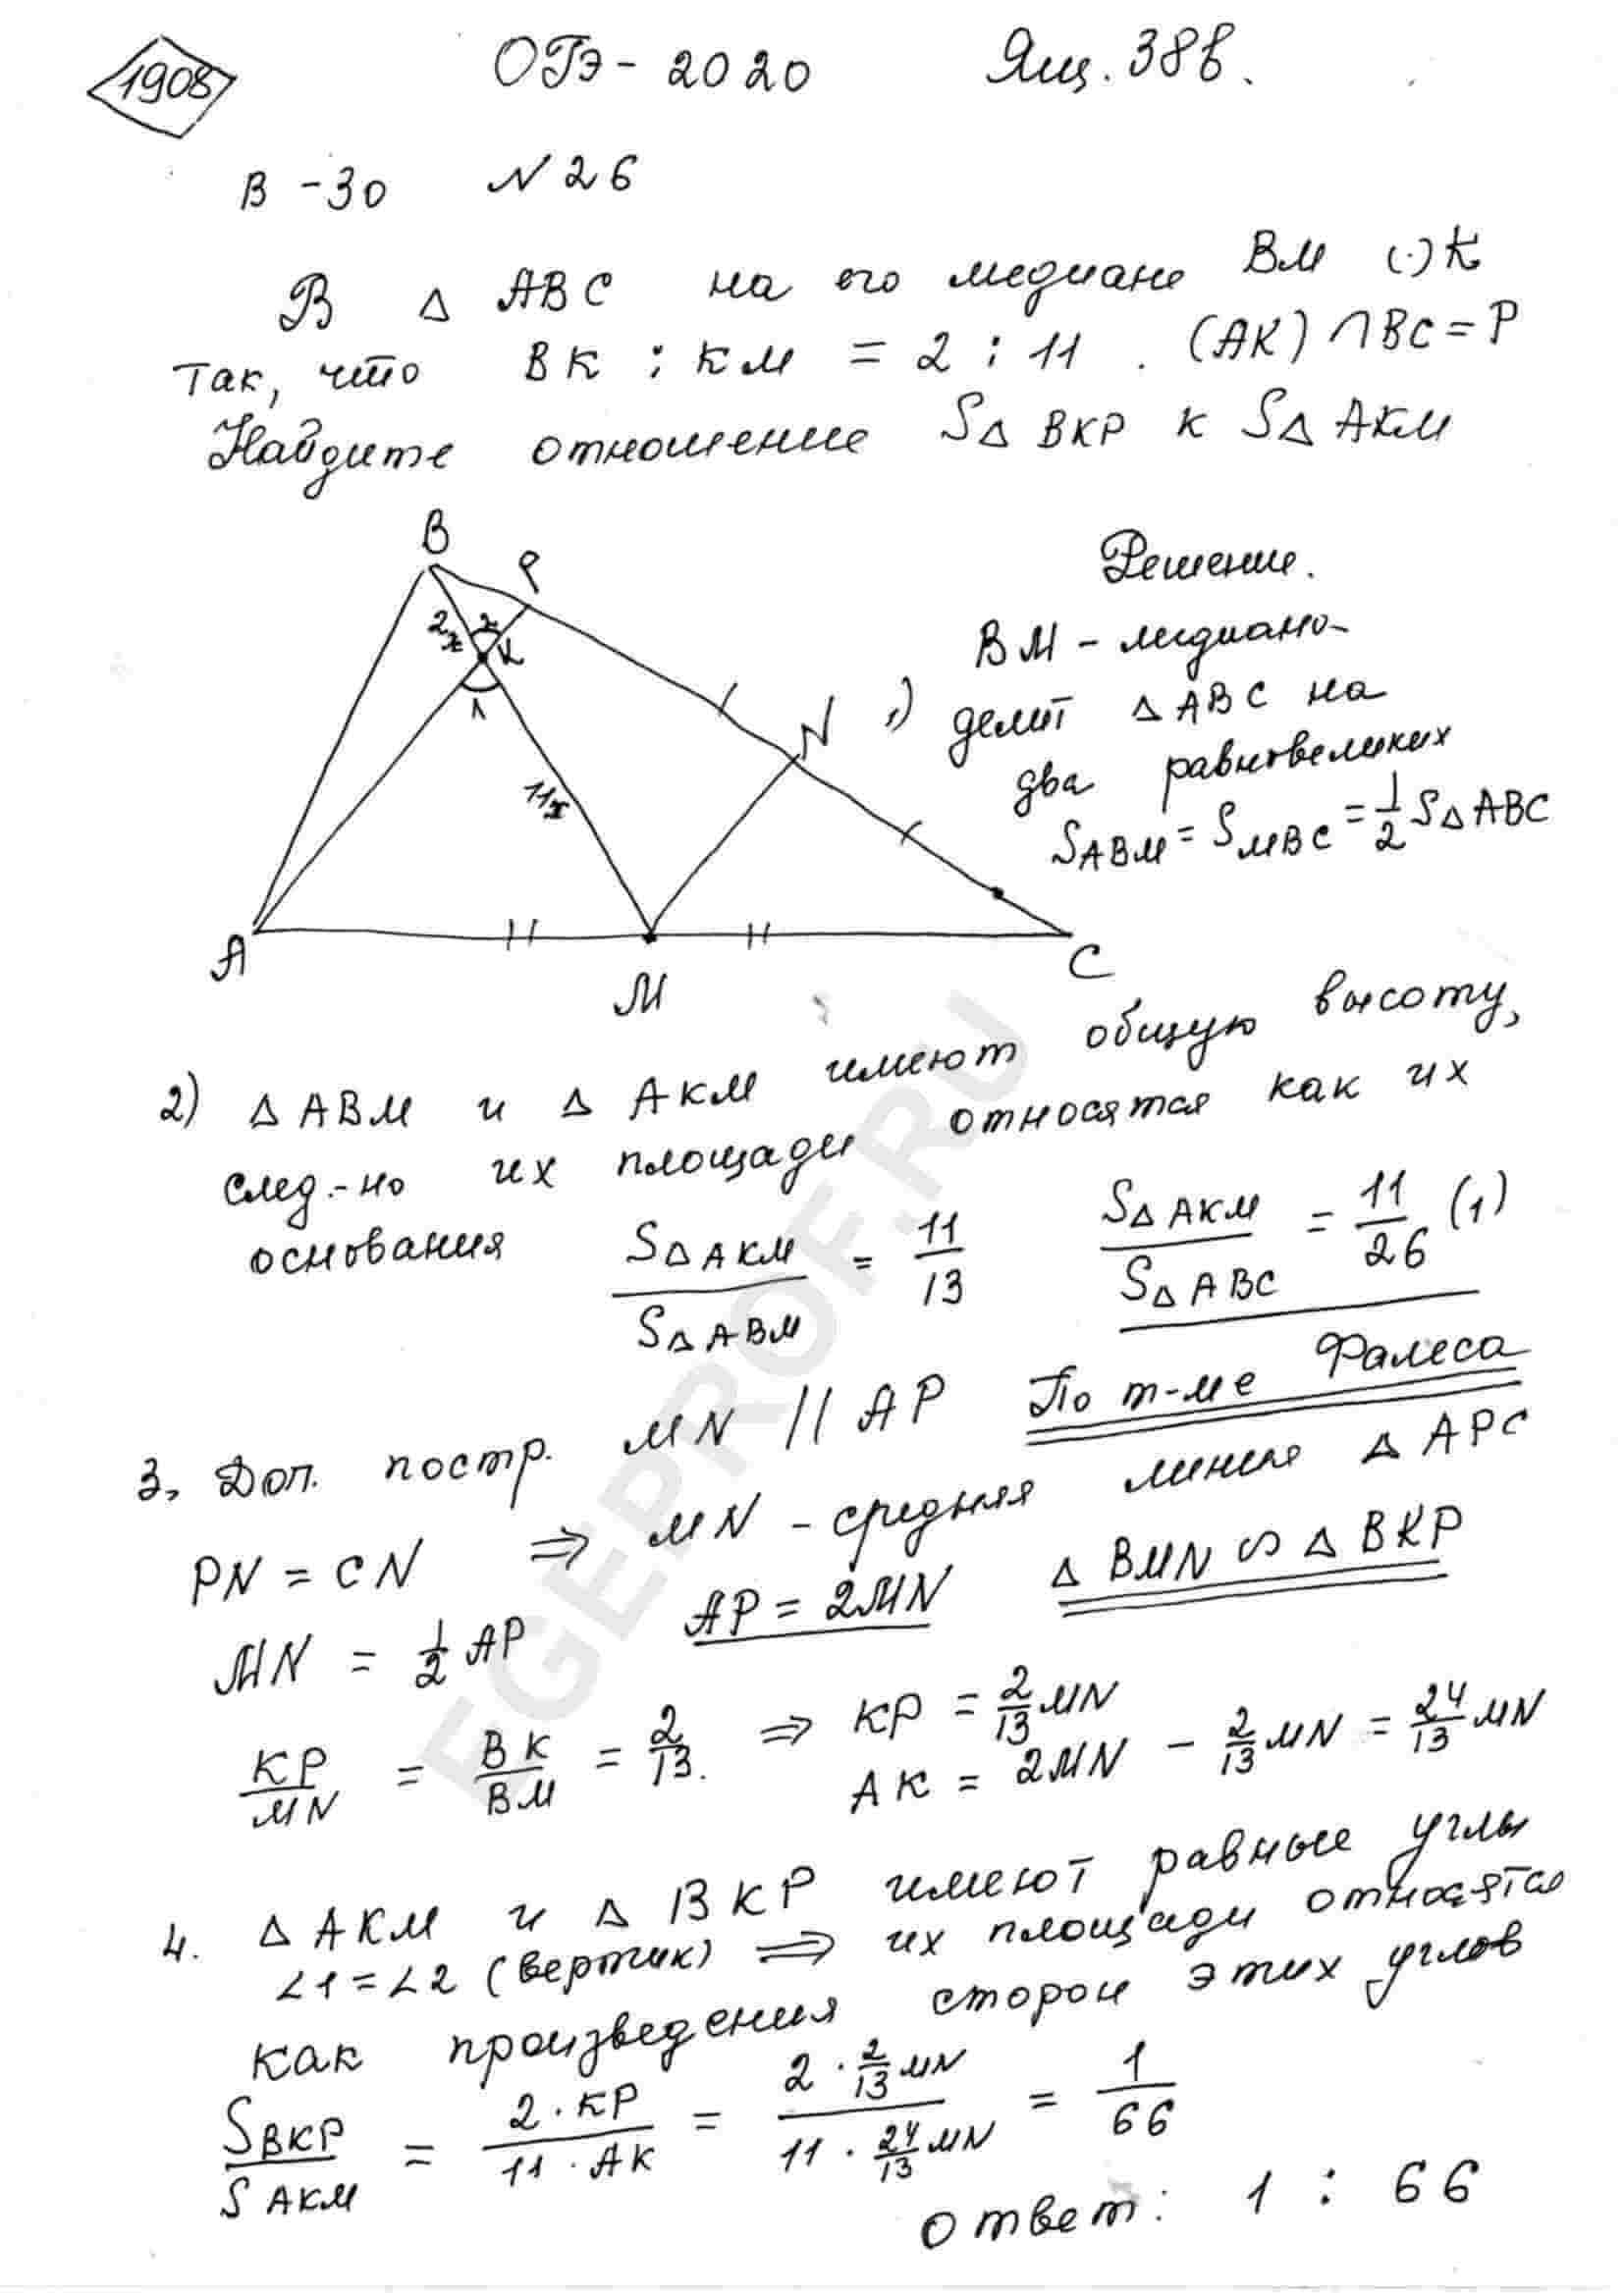 1908 ОГЭ - 2020 Ящ. 38в.
В - 30 N 26
В △ АВС на его медиане ВМ (·)К
так, что ВК : КМ = 2 : 11 . (АК) ∩ ВС = Р
Найдите отношение S△ ВКР к S△ АКМ
B
P
2x 2
K
1
11x
N
A
M
C
Решение.
ВМ - медиана
1) делит △ АВС на
два равновеликих
SАВМ = SМВС = 1/2 S△ АВС
2) △ АВМ и △ АКМ имеют общую высоту,
след.-но их площади относятся как их
основания S△ АКМ / S△ АВМ = 11/13 S△ АКМ / S△ АВС = 11/26 (1)
3, Доп. постр. MN // АР По т-ме Фалеса
PN = CN ⇒ MN - средняя линия △ АРС
MN = 1/2 АР АР = 2MN △ BMN ∽ △ ВКР
КР/MN = ВК/ВМ = 2/13. ⇒ КР = 2/13 MN
АК = 2MN - 2/13 MN = 24/13 MN
4. △ АКМ и △ ВКР имеют равные углы
∠1 = ∠2 (вертик) ⇒ их площади относятся
как произведения сторон этих углов
SВКР / SАКМ = 2 · КР / 11 · АК = 2 · 2/13 MN / 11 · 24/13 MN = 1/66
Ответ: 1 : 66
EGEPROF.RU